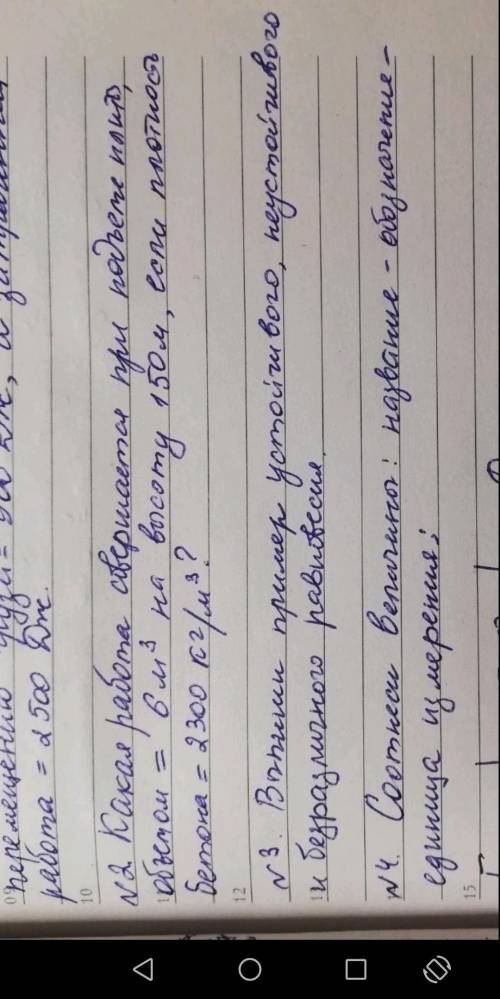 перемещению груза = 900 Дж, а затраченная
работа = 2500 Дж.
№2 Какая работа совершается при подъеме плит,
объемом = 6 м³ на высоту 150 м, если плотность
бетона = 2300 кг/м³?
№3. Выпиши пример устойчивого, неустойчивого
и безразличного равновесия.
№4. Соотнеси величины: название - обозначение -
единица измерения;
10
12
15